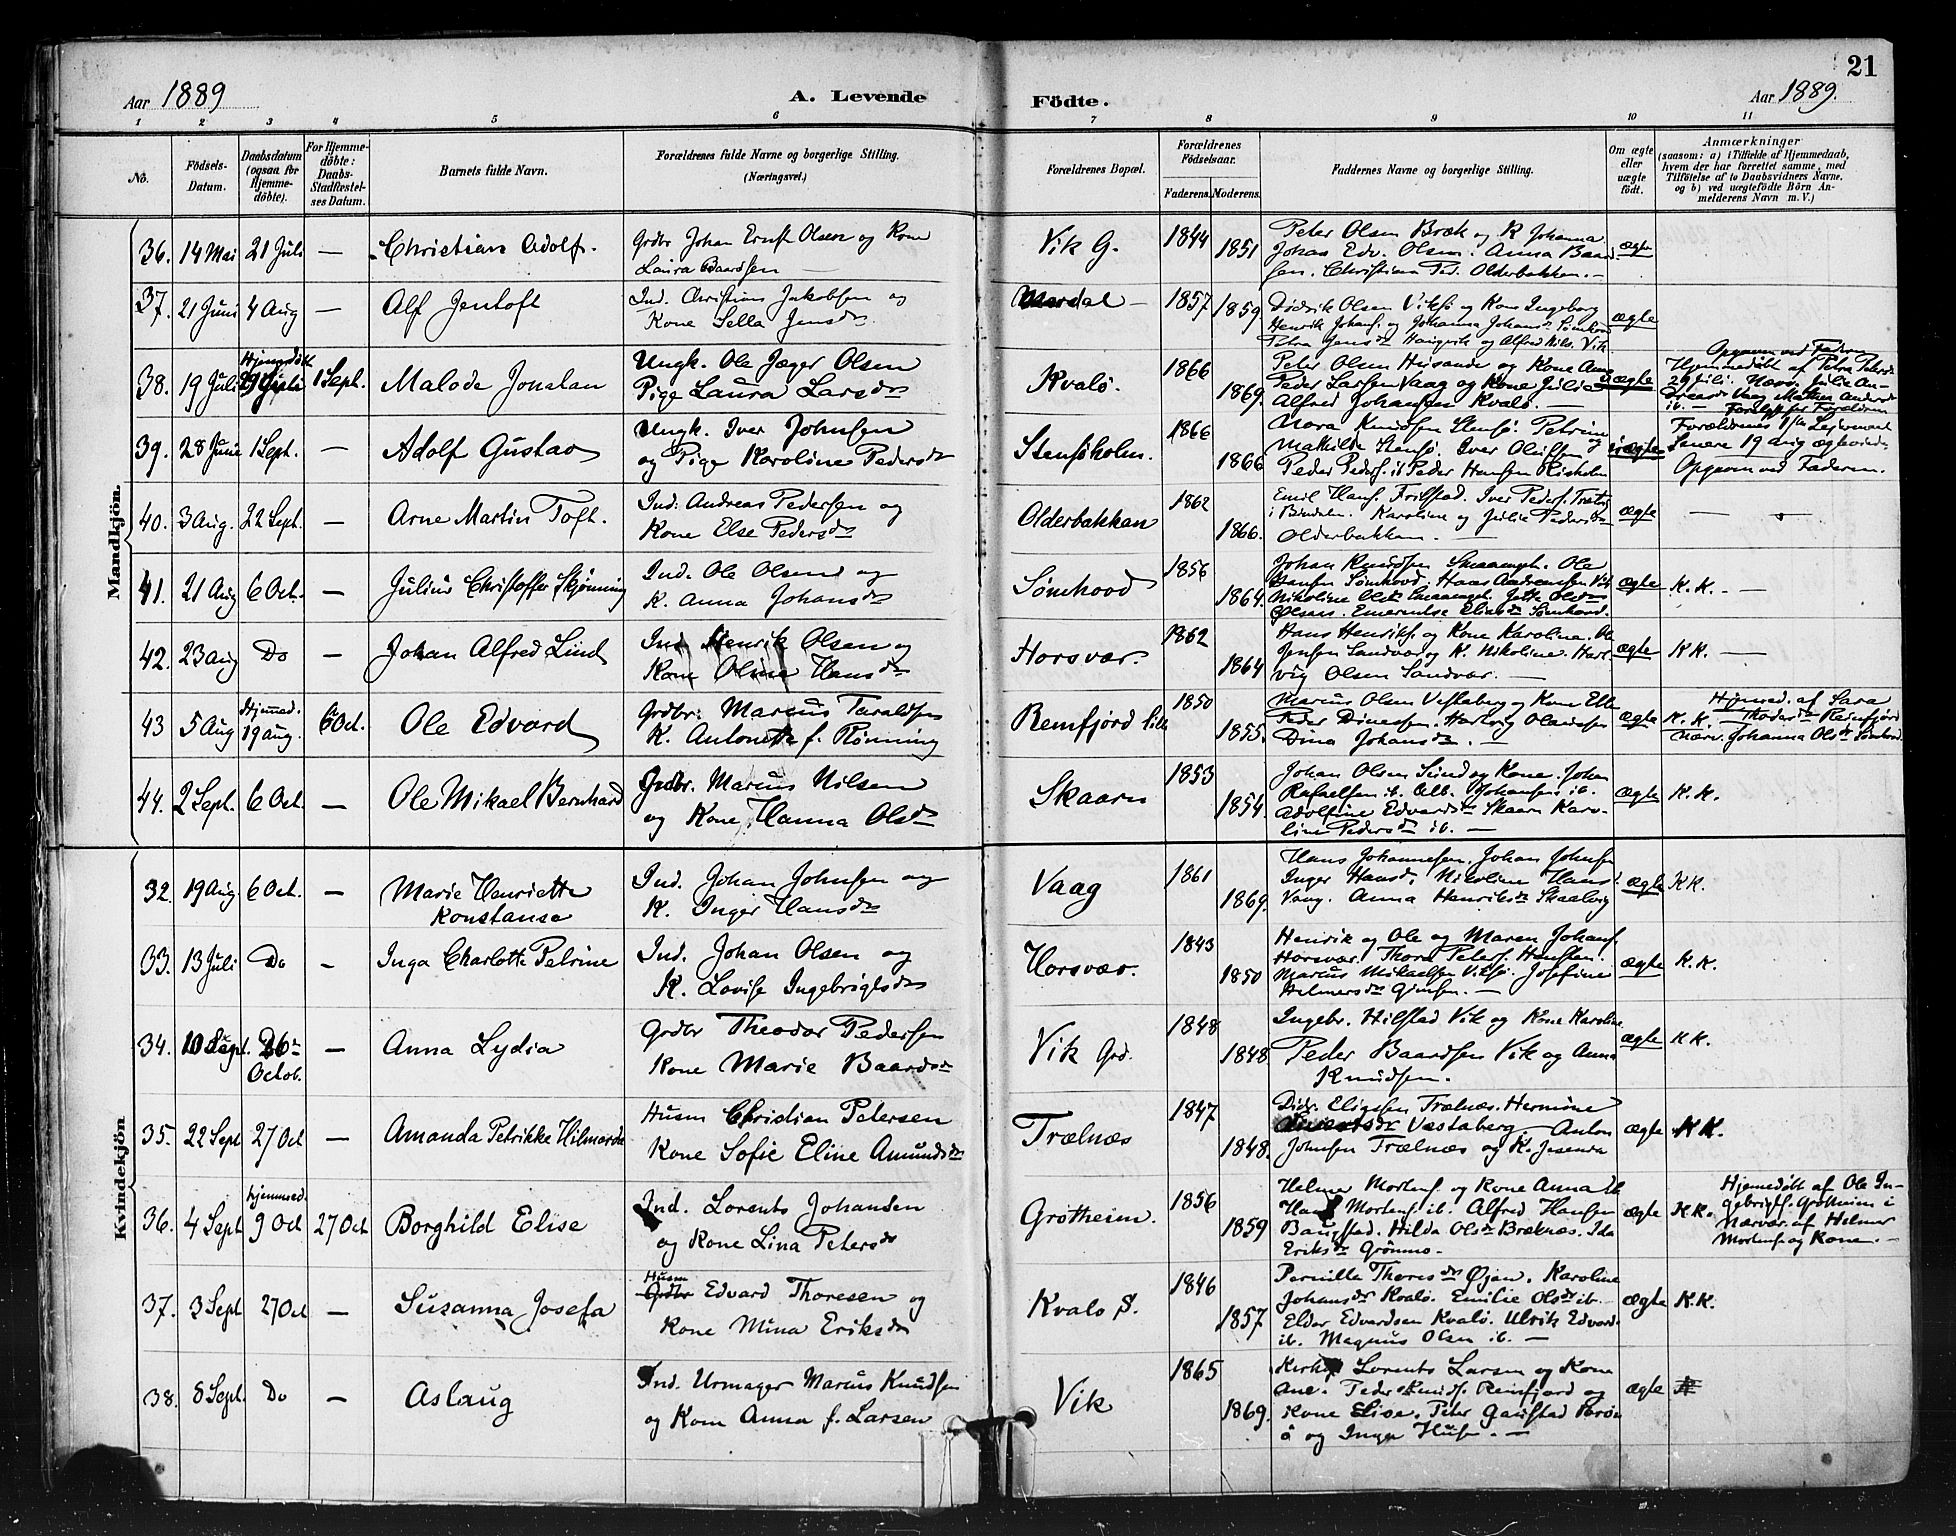 21
Aar 1889
A. Levende
Födte.
Aar 1889.
1 2 3 4 5 6 7 8 9 10 11
No.
Födsels-Datum.
Daabsdatum (ogsaa for Hjemme-döbte).
For Hjemme-döbte: Daabs-Stadfæstel-ses Datum.
Barnets fulde Navn.
Forældrenes fulde Navne og borgerlige Stilling.
(Næringsvei.)
Forældrenes Bopæl.
Forældrenes Födselsaar.
Faderens. Moderens.
Faddernes Navne og borgerlige Stilling.
Om ægte eller uægte födt.
Anmærkninger
(saasom: a) i Tilfælde af Hjemmedaab,
hvem der har forrettet samme, med
Tilföielse af to Daabsvidners Navne,
og b) ved uægtefödte Börn An-
melderens Navn m. V.)
Mandkjön.
36. 14 Mai 21 Juli — Christian Adolf. Grdbr Johan Ernst Olsen og Kone
Laura Baardsen — Vik G. 1844 1851
Peter Olsen Bræk og K Johanna
Johan Edv. Olsen. Anna Baard-
sen. Christian Ped. Olderbakken. — ægte
37. 21 Juni 4 Aug — Alf Jentoft Ind. Christian Jakobsen og
Kone Sella Jensdr Mardal — 1857 1859
Didrik Olsen Viksø og Kone Ingeborg
Henrik Johans. og Johanna Johansdr Sømhovd
Petra Jensdr og Alfred Nils. Vik ægte
38. 19 Juli Hjemedøbt 29 Juli 1 Sept. Malode Jonatan Ungk. Ole Jæger Olsen
Pige Laura Larsdr Kvalø. 1866 1869.
Peter Olsen Husande og Kone Ane
Peder Larsen Vaag og Kone Julie
Alfred Johansen Kvalø. — uægte
Opgaven ved Faderen
Hjemmedøbt af Petra Petersdr
29 juli. Nærv. Julie An-
Vaag
ib. —
39. 28 Juni 1 Sept. — Adolf Gustav Ungk. Iver Johnsen
og Pige Karoline Pedersdr Stensøholm. 1866 1866
Nora Knudsen Stensø. Petrine og
Mathilde Stensø. Iver Oluffsen
Peder Peders. ib Peder Hansen Risholm uægte
Forældrenes
Senere 19 aug
Opgaven ved Faderen.
40. 3 Aug. 22 Sept. — Arne Martin Toft. Ind: Andreas Pedersen og
Kone Else Pedersdr Olderbakken 1862 1866.
Emil Hans. Frilstad. Iver Peders.
i Bindalen. Karoline og Julie Pedersdr
Olderbakken. — ægte — —
41. 21 Aug 6 Oct. — Julius Christoffer Skjønning Ind. Ole Olsen og
K. Anna Johansdr Sømhovd 1856 1864.
Johan Knudsen. Ole
Hansen Sømhovd. Hans Andreassen Vik
Nikoline Olsdr
Emerentse Eliasdr Sømhovd. ægte K.K. —
42. 23 Aug Do — Johan Alfred Lind Ind Henrik Olsen og
Kone Oline Hansdr Horsvær. 1862 1864
Hans Henriks. og Kone Karoline. Ole
Jensen Sandvær og K. Nikoline. Hart-
vig Olsen Sandvær. — ægte KK. —
43 5 Aug Hjemmed. 19 Aug. 6 Oct. Ole Edvard Grdbr: Marcus Taraldsen
K. Antonette f. Rønning Remfjord lille 1850 1855.
Marcus Olsen Vestaberg og Kone Ellen
Peder Dinessen. Hartvig Olaussen
Dina Johansdr. — ægte K.K.
Hjemmed. af Sara
Thodesdr Reinfjord
Nærv. Johanna Olsdr Sømhovd
44. 2 Sept. 6 Oct. — Ole Mikael Bernhard Grdbr. Marcus Nilsen
og Kone Hanna Olsdr Skaaren 1853 1854.
Johan Olsen Sund og Kone. Johan
Rafaelsen ib. Alb. Johansen ib.
Adolfine Edvardsdr Skaaren Karo-
line Pedersdr ib. — ægte K.K.
Kvindekjön
32. 19 Aug 6 Oct. — Marie Henriette
Konstanse Ind. Johan Johnsen og
K. Inger Hansdr Vaag 1861 1869.
Hans Johannesen. Johan Johnsen
Inger Hansd. Nikoline Hansd.
Vaag. Anna Henriksdr Skaalvig ægte KK.
33. 13 Juli Do — Inga Charlotte Petrine Ind. Johan Olsen og
K. Lovise Ingebrigtsdr Horsvær. 1843 1850
Henrik og Ole og Maren Johans.
Horsvær. Thora Peters.
Marcus Mikaelsen Viksø. Josefine
Helmersdr — ægte K.K.
34. 10 Sept. D 6te
Octob. — Anna Lydia Grdbr Theodor Pedersen
Kone Marie Baardsdr Vik Grd. 1848 1848
Ingebr. Hilstad Vik og Kone Karoline
Peder Baardsen Vik og Anna
Knudsen. ægte KK.
35. 22 Sept 27 Oct — Amanda Petrikke Hilmarda Husm Christian Petersen
Kone Sofie Eline Amundsdr Trælnæs 1847 1848.
Didr. Eliassen Trælnæs. Hermine
Vestaberg. Anton
Johnsen Trælnæs og K. Jesenda ægte KK.
36. 4 Sept hjemmed. 9 Oct 27 Oct Borghild Elise Ind. Lorents Johansen
og Kone Lina Petersdr Grøtheim. 1856 1859
Helmer Mortens. og Kone Anna
Mortens. ib. Alfred Hansen
Baugstad. Hilda Olsdr Bræknæs. Ida
Eriksdr Grønmo. ægte K.K.
Hjemedøbt af Ole In-
gebrigts. Grøtheim i
Nærvær. af Helmer
Mortens. og Kone. —
37. 3 Sept 27 Oct — Susanna Josefa Husm
Grdbr Edvard Thoresen og
Kone Mina Eriksdr Kvalø S. 1846 1857
Pernilla Thoresdr Øjen. Karoline
Johansdr Kvalø. Emilie Olsdr ib.
Eldor Edvardsen Kvalø. Ulrik Edvard-
ib. Magnus Olsen ib. — ægte K.K.
38. 8 Sept. Do — Aslaug Ind. Urmager Marcus Knudsen
og Kone Anna f. Larsen Vik 1865 1869.
Lorents Larsen og Kone
Ane. Peder Knuds. Reinfjord og
Kone Elise. Peter Gaustad Brøn-
ø og Inga Hus. — ægte